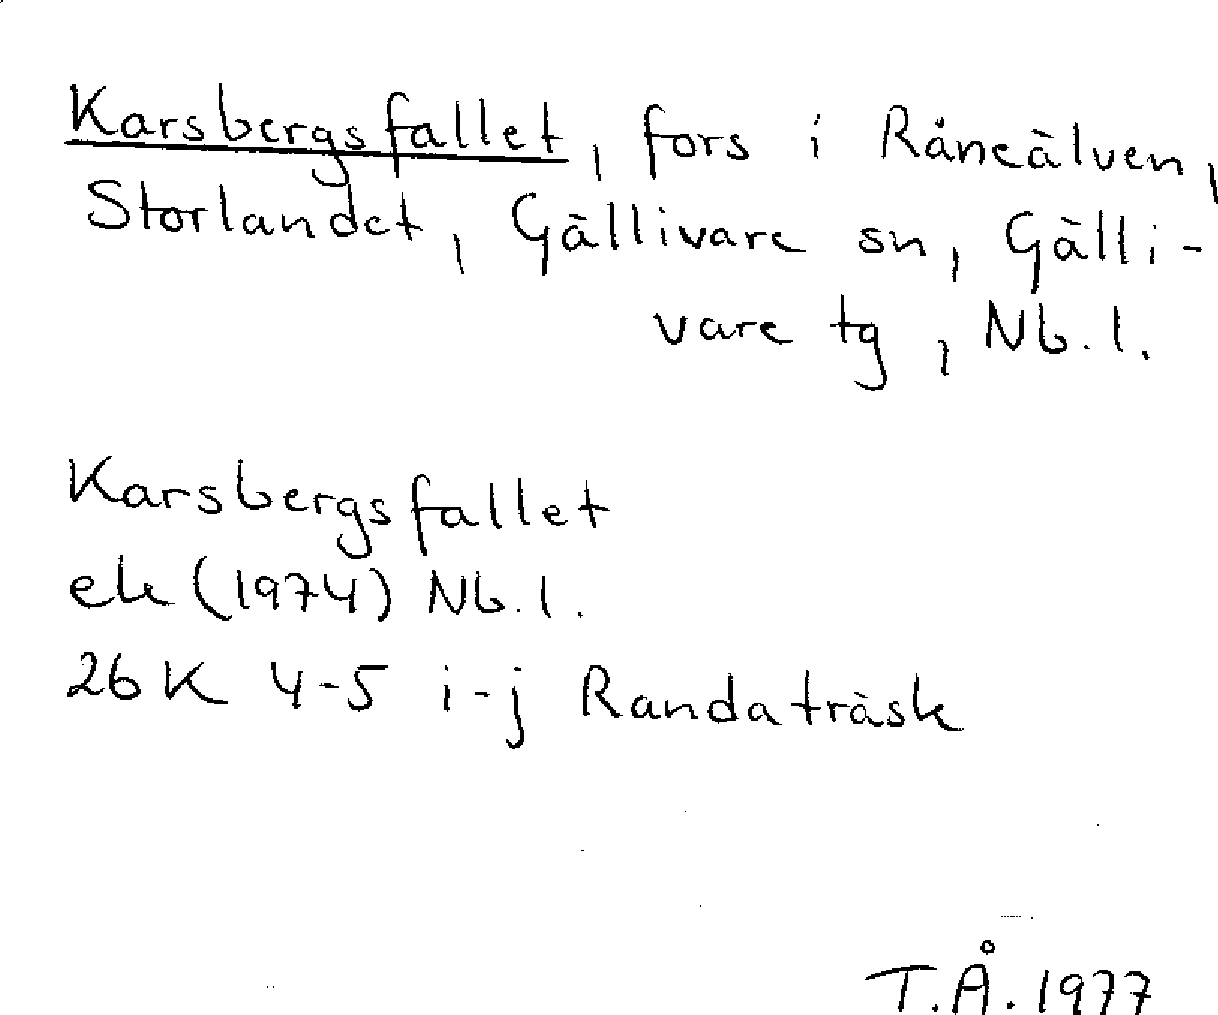 Karsbergsfallet, fors i Råneälven,
Storlandet, Gällivare sn, Gälli-
vare tg, Nb.l.
Karsbergsfallet
ek (1974) Nb.l.
26K 4-5 i-j Randaträsk
T.Å. 1977